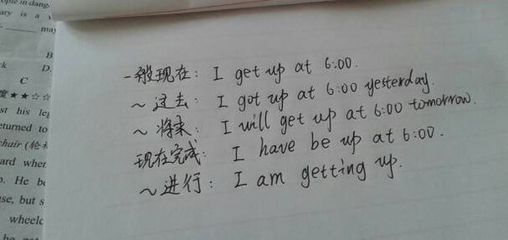 一般现在: I get up at 6:00.
～过去: I got up at 6:00 yesterday.
～将来: I will get up at 6:00 tomorrow.
现在完成: I have be up at 6:00.
～进行: I am getting up.
may
B
k D.
C
度★★☆☆
st his leg
eturned to
chair (轮
ard when
p. He be
se, but s
wheelc